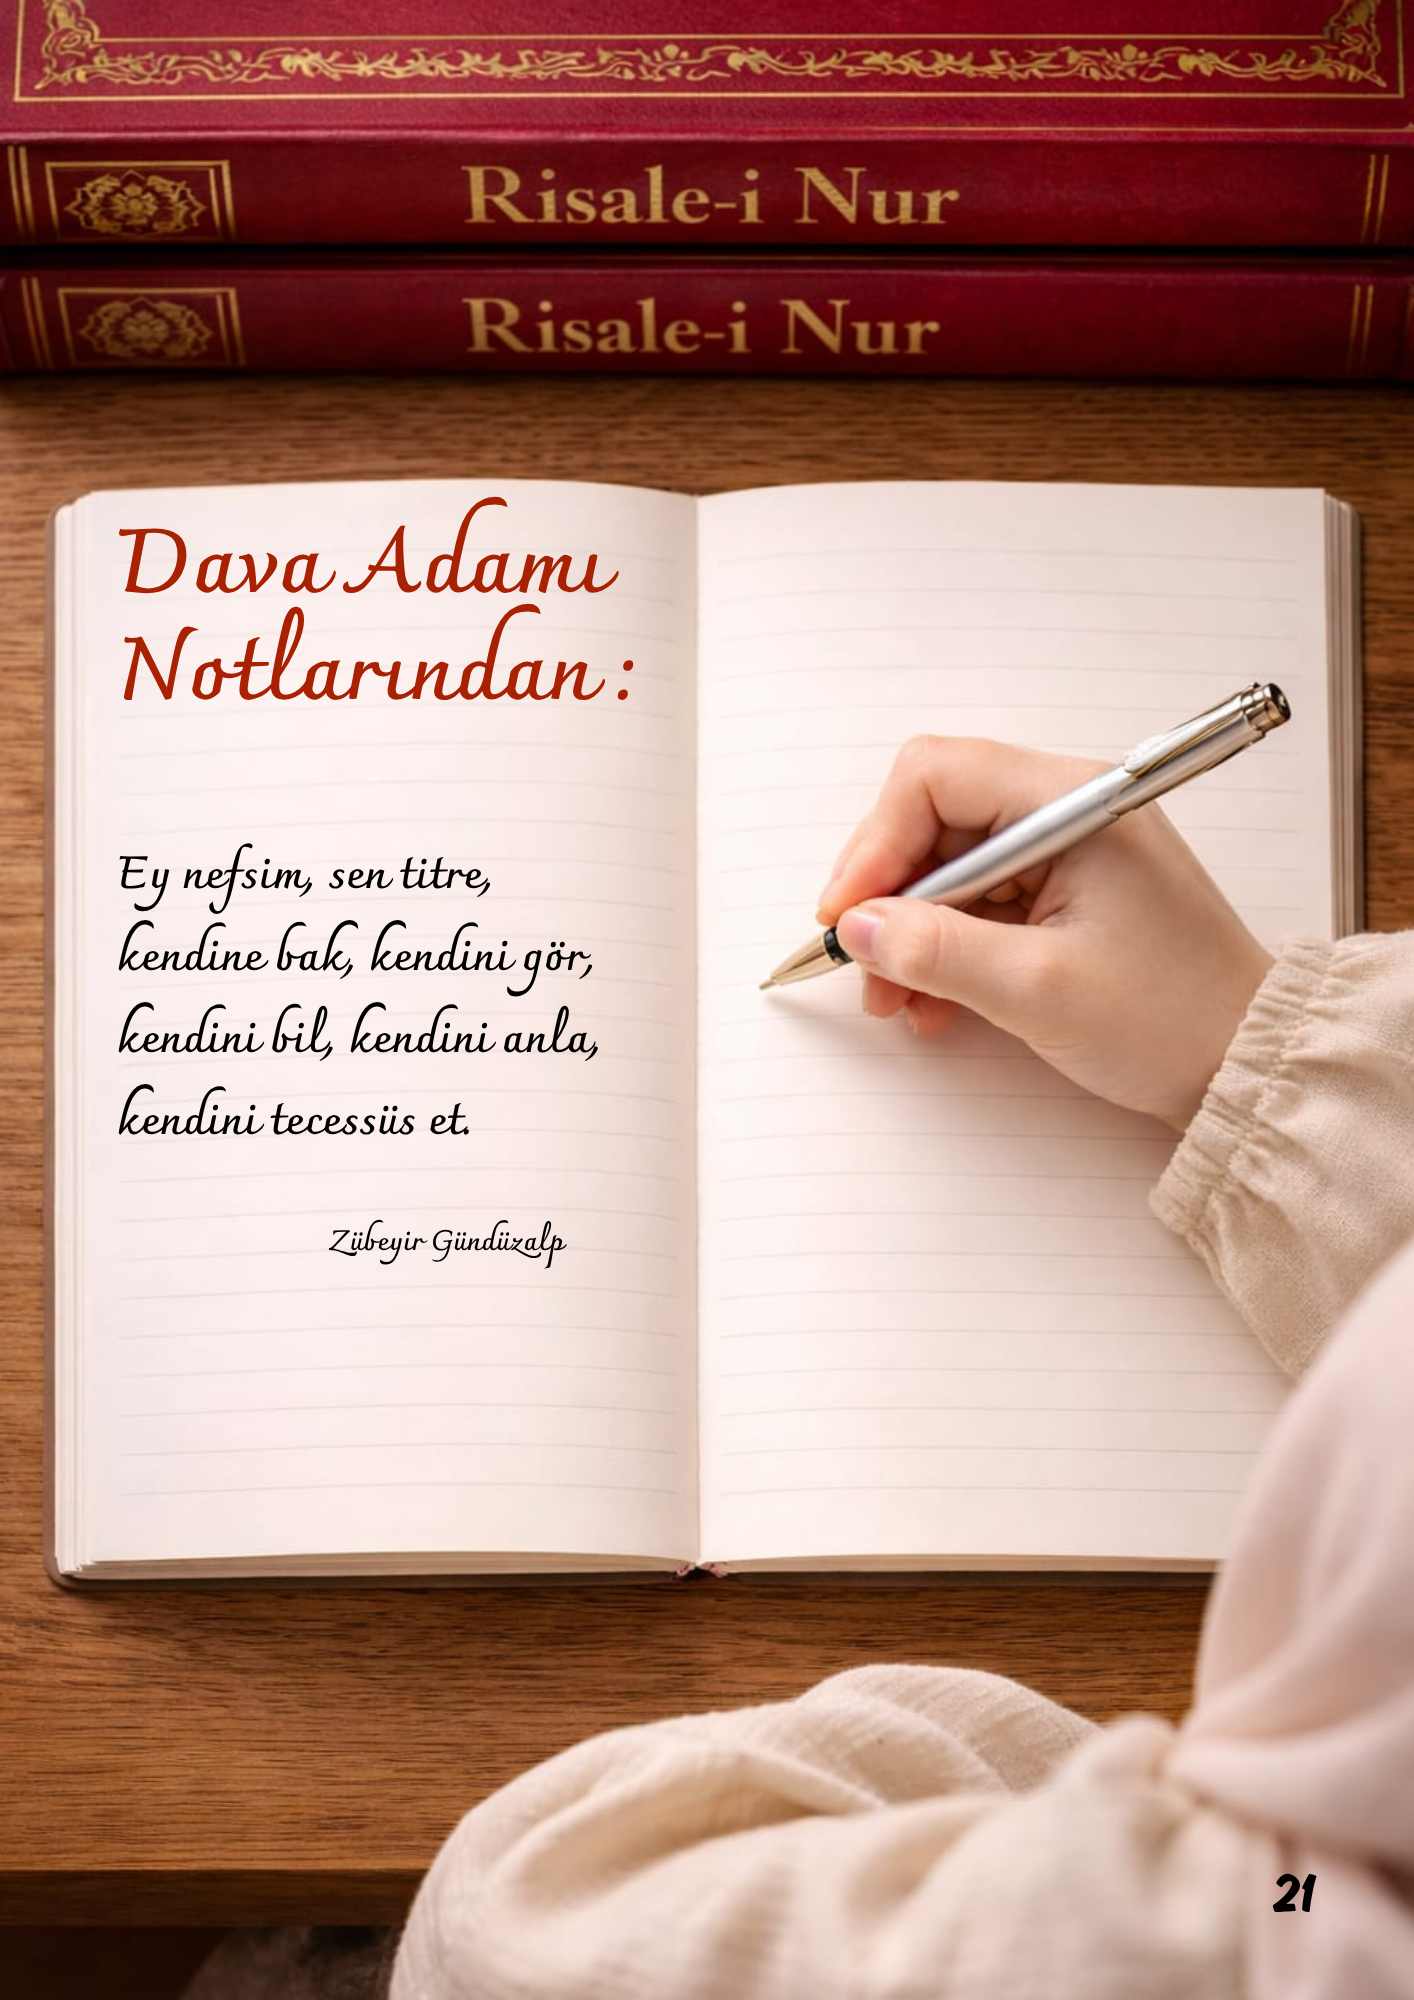 Risale-i Nur
Risale-i Nur
Dava Adamı
Notlarından :
Ey nefsim, sen titre,
kendine bak, kendini gör,
kendini bil, kendini anla,
kendini tecessüs et.
Zübeyir Gündüzalp
21